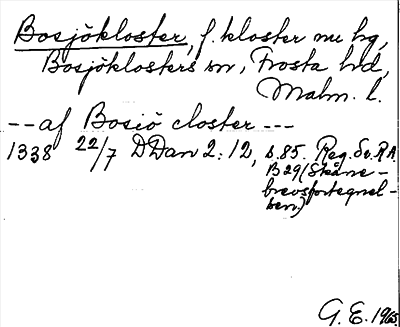 Bosjökloster, f. kloster nu hg,
Bosjöklosters sn, Frosta hd,
Malm. l.
--af Bosiö closter ---
1338 22/7 DDan 2:12, s.85. Reg. Sv. R.A.
B29 (Skåne-
brevsfortegnel-
sen)
G.E. 1965